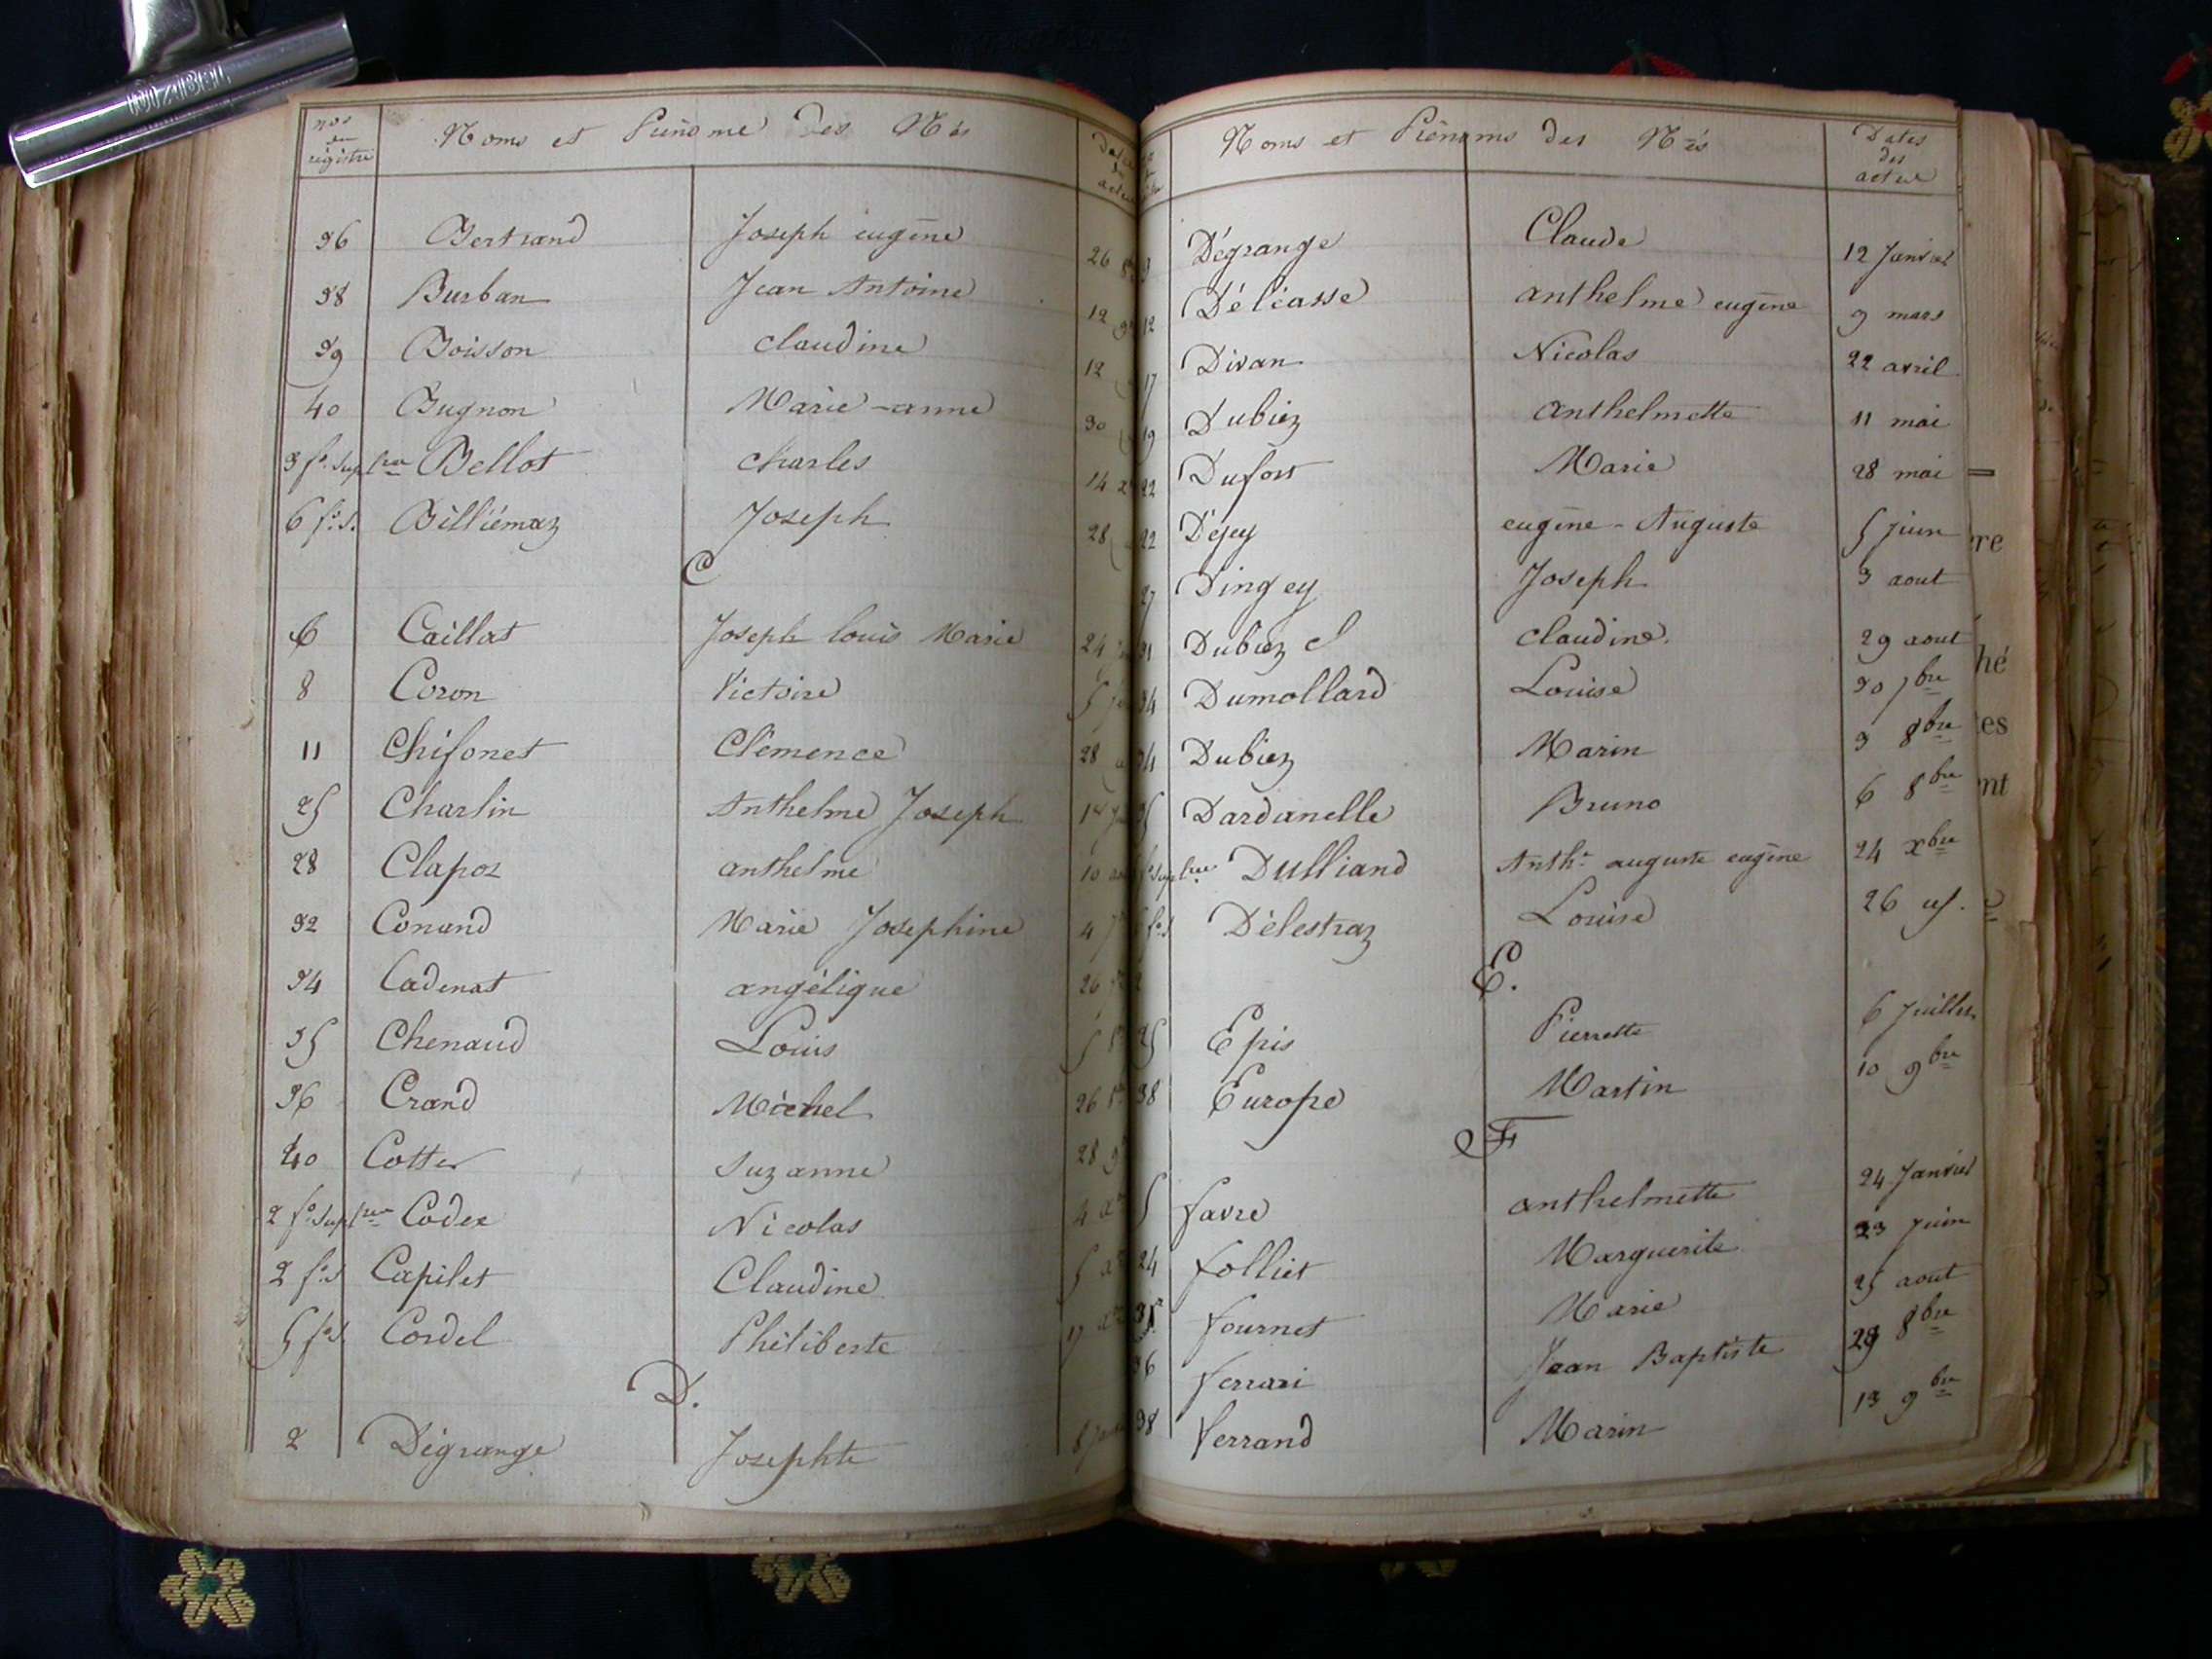 nos du régistre Noms et Prénoms des Nés
36 Bertrand Joseph eugêne 26
38 Burban Jean Antoine 12
39 Boisson claudine 12
40 Bugnon Marie-anne 30
3 fo. sup.re Bellot charles 14
6 fo. s. Billiémaz Joseph 28
C
6 Caillat Joseph louis Marie 24
8 Coron Victoire 5
11 Chifonet Clêmence 28
25 Charlin Anthelme Joseph 1er
28 Clapoz anthelme 10
32 Conand Marie Josephine 4
34 Cadenat angélique 26
35 Chenaud Louis 5
36 Crand Michel 26
40 Cotter Suzanne 28
2 fo. sup.re Codex Nicolas 4
2 fo. s. Capilet Claudine 5
5 fo. s. Cordel Philiberte 17
D.
2 Dégrange Josephte 8
Noms et Prénoms des Nés Dates des actes
3 Dégrange Claude 12 Janvier
12 Délicasse anthelme eugêne 9 mars
17 Divan Nicolas 22 avril
19 Dubiez anthelmette 11 mai
22 Dufort Marie 28 mai
22 Déjey eugêne-Auguste 5 juin
27 Dingey Joseph 3 aout
31 Dubiez Cl claudine. 29 aout
34 Dumollard Louise 30 7bre
34 Dubiez Marin 3 8bre
35 Dardanelle Bruno 6 8bre
fo. sup.re Dulliand Anth. auguste eugêne 24 xbre
fo. s Délestraz Louise 26
E.
25 Epis Pierrette 6 Juillet
38 Europe Martin 10 9bre
F
5 favre anthelmette 24 Janvier
24 folliet Marguerite 23 Juin
31 fournet Marie 25 aout
36 ferrari Jean Baptiste 29 8bre
38 ferrand Marin 13 9bre